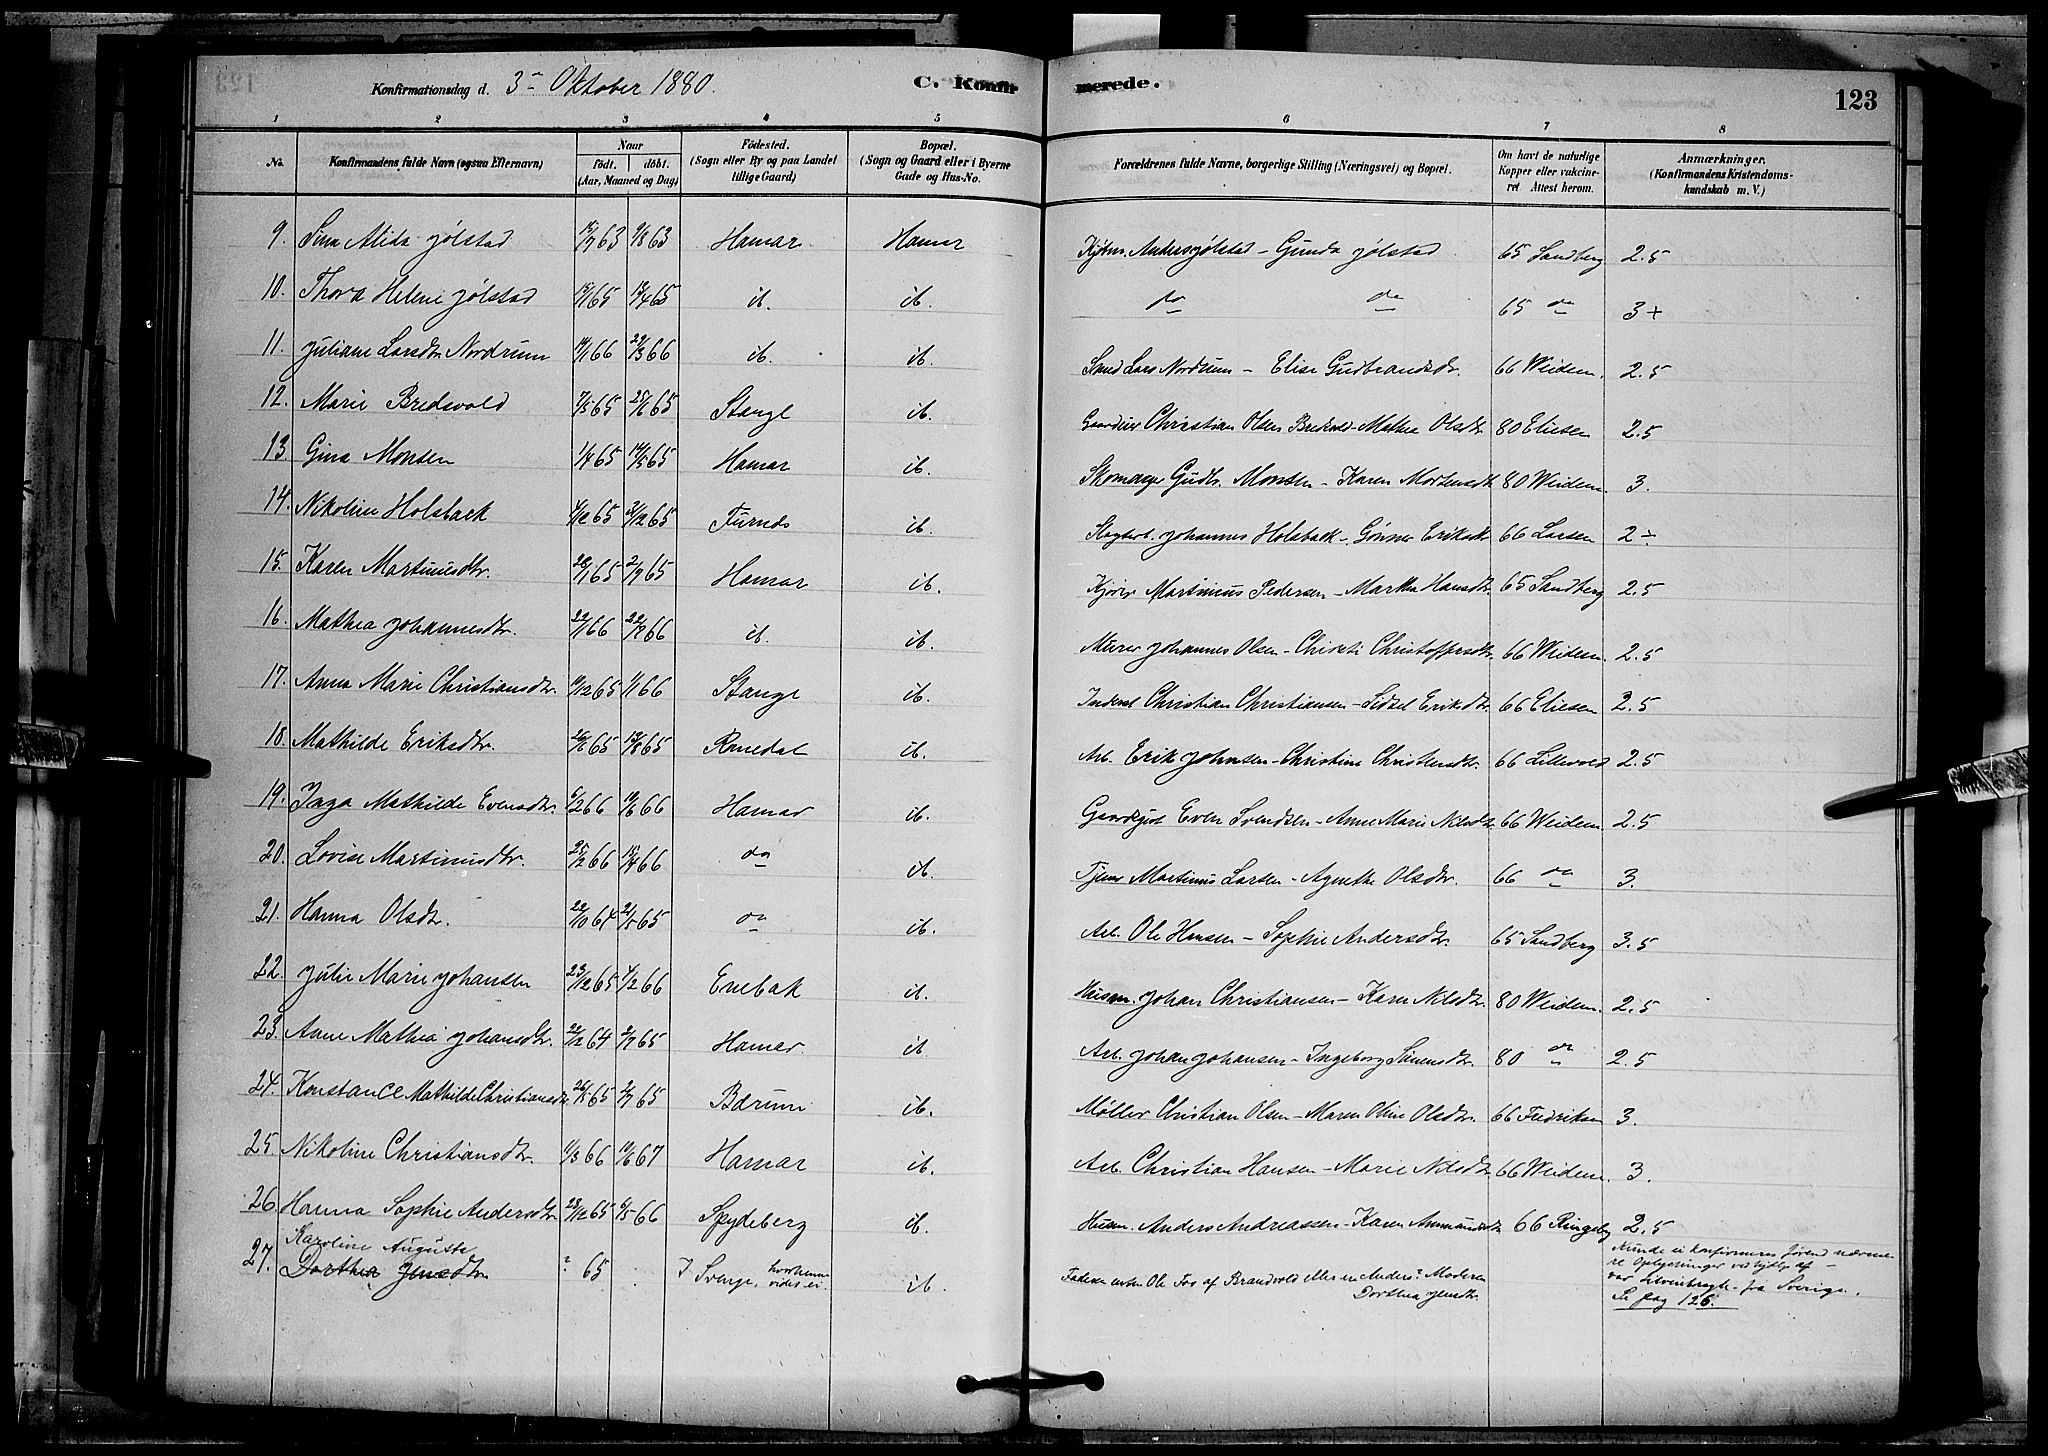 Konfirmationsdag d. 3die Oktober 1880. C. Konfirmerede. 123
1 2 3 4 5 6 7 8
No. Konfirmandens fulde Navn (ogsaa Efternavn) Naar Födt. döbt. (Aar, Maaned og Dag) Födested. (Sogn eller By og paa Landet tillige Gaard) Bopæl. (Sogn og Gaard eller i Byerne Gade og Hus-No. Forældrenes fulde Navne, borgerlige Stilling (Næringsvei) og Bopæl. Om havt de naturlige Kopper eller vakcineret. Attest herom. Anmærkninger. (Konfirmandens Kristendomskundskab m. V.)
9. Sina Alida Jølstad 63 9/8 63 Hamar Hamar Anders Jølstad - Gunda Jølstad 65 Sandberg 2.5
10. Thora Helene Jølstad 65 65 ib. ib. do do 65 do 3+
11. Juliane Larsdtr. Nordrum 14/1 66 29/3 66 ib. ib. Lars Nordrum - Elise Gudbrandsdtr. 66 Weidem. 2.5
12. Marie Bredvold 7/5 65 65 Stange ib. Christian Olsen Bredvold - Mathea Olsdtr. 80 Eliesen 2.5
13. Gina Monsen 1/4 65 14/5 65 Hamar ib. Skomager Gudb. Monsen - Karen Mortensdtr. 80 Weidem. 3.
14. Nikoline Holsbæk 65 65 Furnes ib. Johannes Holsbæk - Gunner Eriksdtr. 66 Larsen 2÷
15. Karen Martinusdtr. 28/1 65 65 Hamar ib. Kjører Martinus Pedersen - Martha Hansdtr. 65 Sandberg 2.5
16. Mathea Johannesdtr. 66 66 ib. ib. Murer Johannes Olsen - Christoffersdtr. 66 Weidem. 2.5
17. Anna Marie Christiansdtr. 65 1/1 66 Stange ib. Inderst Christian Christiansen - Sidsel Eriksdtr. 66 Eliesen 2.5
18. Mathilde Eriksdtr. 65 65 Romedal ib. Arb. Erik Johnsen - Christine Christensdtr. 66 Lillevold 2.5
19. Inga Mathilde Evensdtr. 6/2 66 10/6 66 Hamar ib. Even Svendsen - Anne Marie Nilsdtr. 66 Weidem. 2.5
20. Lovise Martinusdtr. 25/2 66 15/4 66 do ib. Tjener Martinus Larsen - Agnethe Olsdtr. 66 do 3.
21. Hanna Olsdtr. 22/10 64 21/5 65 do ib. Arb. Ole Hansen - Sophie Andersdtr. 65 Sandberg 3.5
22. Julie Marie Johansen 23/12 65 4/2 66 Enebak ib. Husm. Johan Christiansen - Karen Nilsdtr. 80 Weidem. 2.5
23. Anne Mathea Johansdtr. 22/12 64 2/7 65 Hamar. ib. Arb. Johan Johansen - Ingeborg Simensdtr. 80 do 2.5
24. Konstance Mathilde Christiansdtr. 26/5 65 2/7 65 Bærum ib. Møller Christian Olsen - Maren Oline Olsdtr. 66 Fredriksen 3.
25. Nikoline Christiansdtr. 11/3 66 10/6 67 Hamar ib. Arb. Christian Hansen - Marie Nilsdtr. 66 Weidem. 3.
26. Hanna Sophie Andersdtr. 23/12 65 6/5 66 Spydeberg ib. Husm. Anders Andreassen - Karen Ammundsdtr. 66 Ringeby 2.5
Karoline Auguste
27. Dorthea Jensdtr. ? 65 I Sverige, hvorhenne vides ei. ib. Faderen enten Ole Fos af Brandvold eller en Anders? Moderen Dorthea Jensdtr. Kunde ei konfirmeres førend nærmere Oplysninger fra Sverige.
Se pag 126.